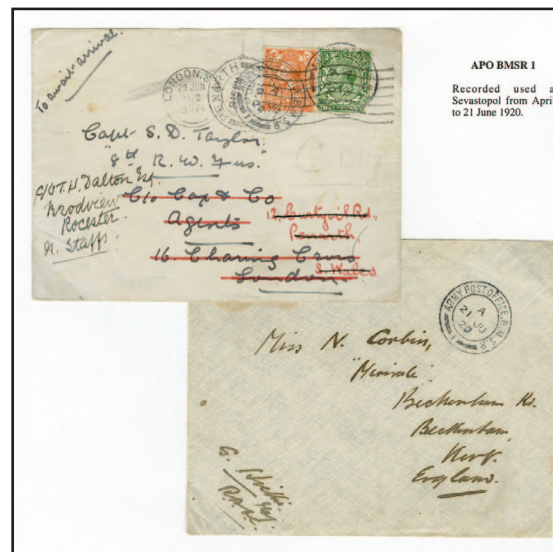 To await arrival.
LONDON.S
29 JUN
PENARTH
Capt. S. D. Taylor
8th R. W. Fus.
C/o T. H. Dalton Esq.
Brodview
Rocester
N. Staffs
C/o Cox & Co
Agents
16 Charing Cross
London
12, Rd.
Penarth
S. Wales
APO BMSR 1
Recorded used a
Sevastopol from Apri
to 21 June 1920.
ARMY POST OFFICE B.M.S.R.
A
21 JU
20
1
Miss N. Corbin,
Beckenham Rd.
Beckenham
Kent.
England.
G.